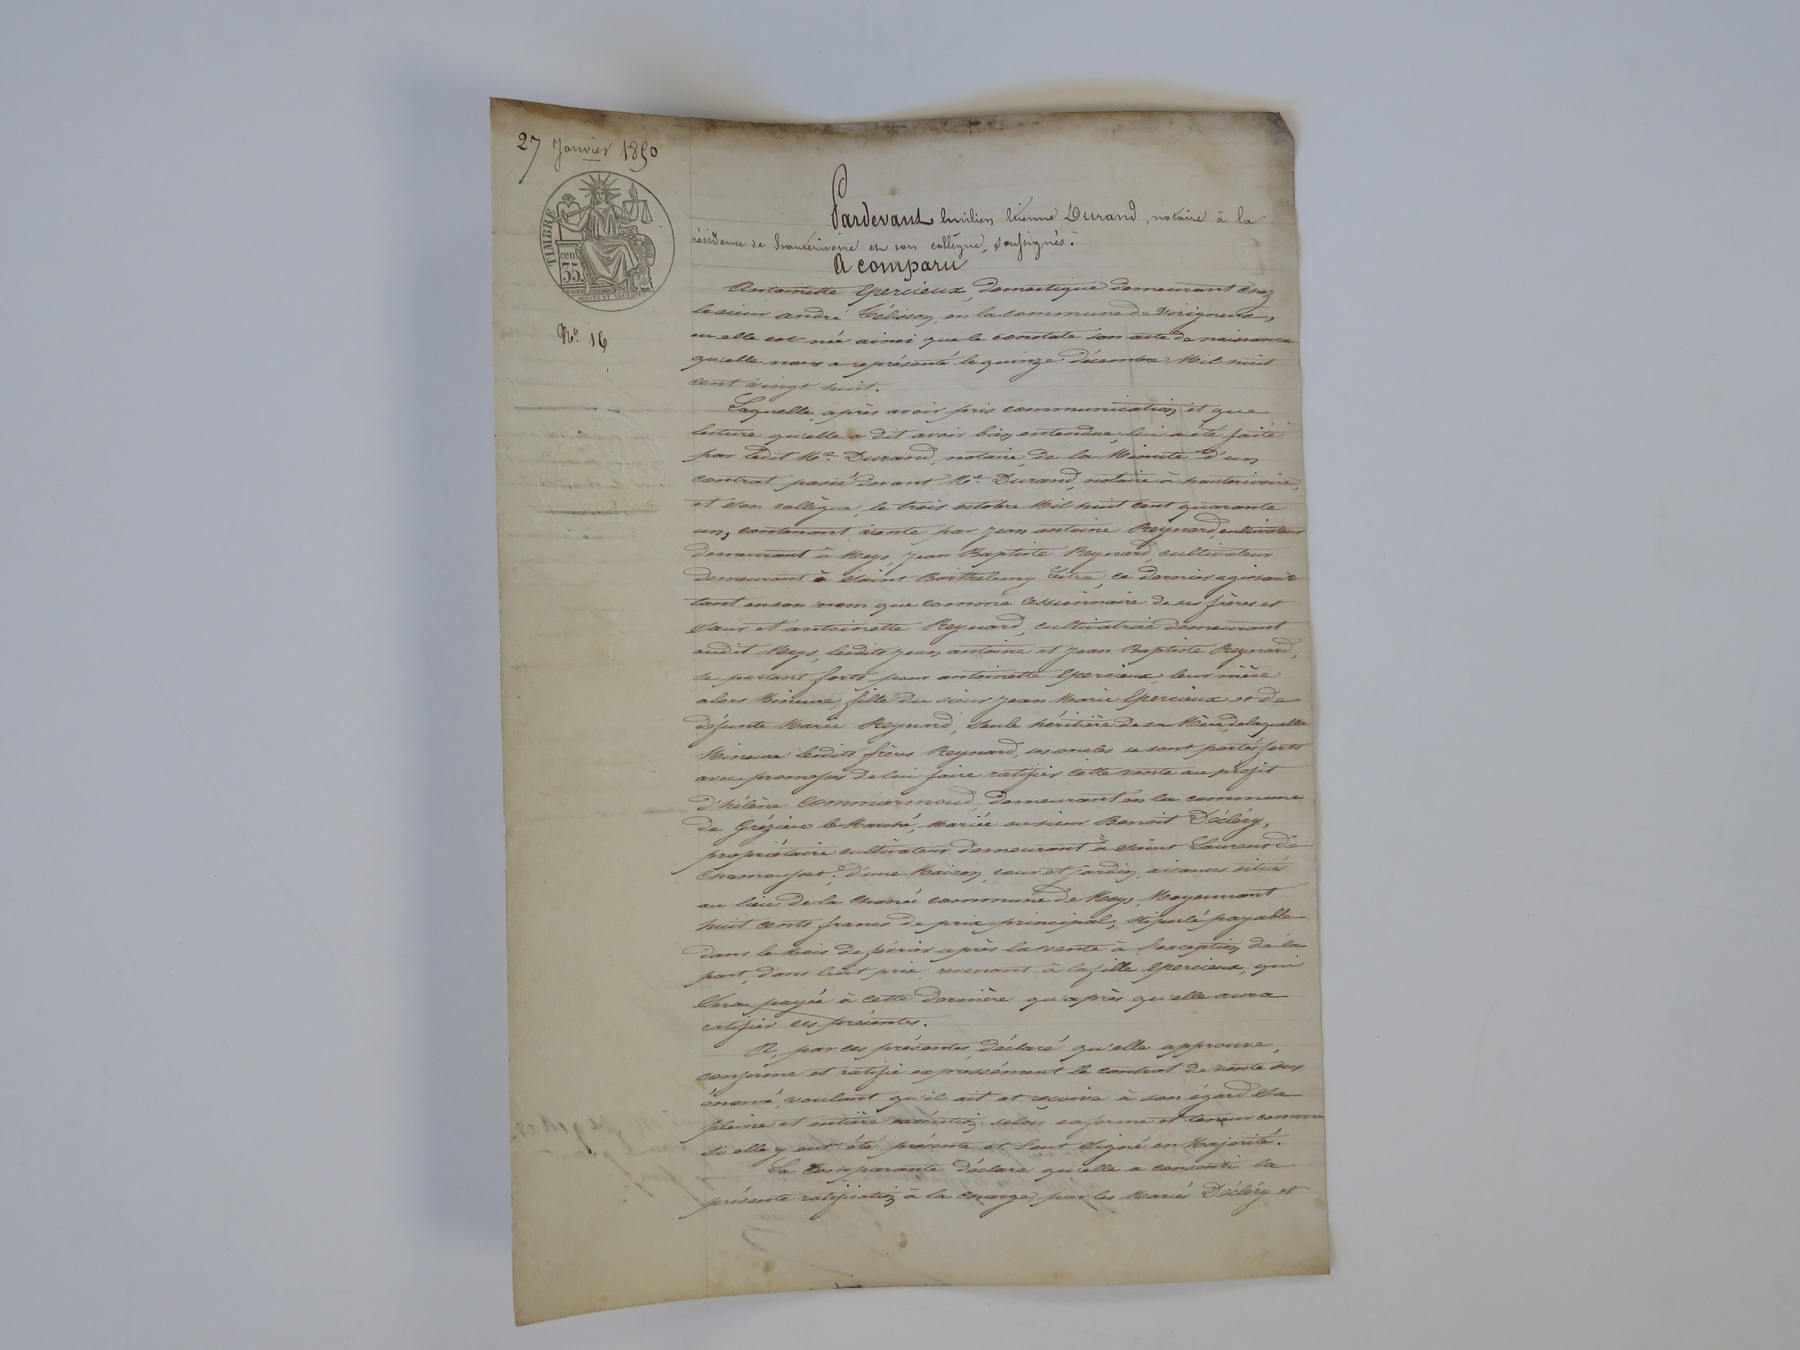 27 Janvier 1850
TIMBRE
35 cent
No. 16
Pardevant Etienne Durand, notaire à la
résidence de hauterivoire et son collègue, soussignés.
A comparu
Antoinette Epercieux, domestique demeurant chez
le sieur andré en la commune de Virigneux,
ou elle est née ainsi que le constate son acte de naissance
qu'elle nous a représenté le quinze décembre Mil huit
cent vingt huit.
Laquelle, après avoir pris communication et que
lecture qu'elle a dit avoir bien entendue, lui a été faite
par ledit Me. Durand, notaire, de la Minute d'un
contrat passé devant Me. Durand, notaire à hauterivoire,
et son collègue, le trois octobre Mil huit cent quarante
un, contenant vente par jean antoine Reynard, cultivateur
demeurant à Meys, jean Baptiste Reynard, cultivateur
demeurant à Saint Barthelemy Lestra, ce dernier agissant
tant en son nom que comme cessionnaire de ses frères et
sœur et antoinette Reynard, cultivatrice demeurant
audit Meys, lesdits jean antoine et jean Baptiste Reynard,
se portant forts pour antoinette Epercieux, leur nièce
alors Mineure, fille du sieur jean Marie Epercieux et de
défunte Marie Reynard, seule héritière de sa Mère, de laquelle
Mineure lesdits frères Reynard, ses oncles se sont portés forts
avec promesse de lui faire ratifier cette vente au profit
d'hélène Commarmond, demeurant en la commune
de Grézieu le Marché, Mariée au sieur Benoit Décléry,
propriétaire cultivateur demeurant à Saint Laurent de
Chamousset; d'une Maison, cour et jardin, aisances situés
au lieu de la commune de Meys, Moyennant
huit cents francs de prix principal, stipulé payable
dans le Mois de février après la vente à l'exception de la
part, dans ledit prix, revenant à la fille Epercieux, qui
sera payée à cette dernière qu'après qu'elle aura
ratifier ces présentes.
A, par ces présentes, déclaré qu'elle approuve,
confirme et ratifie expressément le contrat de vente sus
énoncé, voulant qu'il ait et reçoive à son égard sa
pleine et entière exécution, selon sa forme et teneur comme
si elle y eut été présente et l'eut signé en Majorité.
La Comparante déclare qu'elle a consenti la
présente ratification à la charge par les Mariés Décléry et